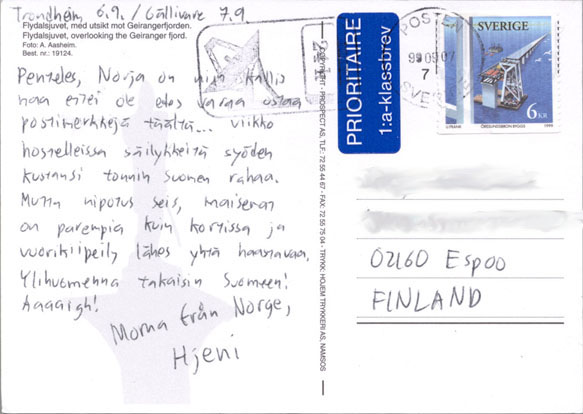 Trondheim 6.9. / Gällivare 7.9
Flydalsjuvet, med utsikt mot Geirangerfjorden.
Flydalsjuvet, overlooking the Geiranger fjord.
Foto: A. Aasheim.
Best. nr.: 19124.
Penteles, Norja on niin kallis
maa ettei ole edes varaa ostaa
postimerkkejä täältä... viikko
hostelleissa säilykkeitä syöden
kustansi tonnin Suomen rahaa.
Mutta nipotus seis, maisemat
on parempia kuin kortissa ja
vuorikiipeily lähes yhtä haastavaa.
Ylihuomenna takaisin Suomeen!
Aaaaigh!
Morna från Norge,
Hjeni
PROSPECT AS, TLF.: 72 55 44 87 - FAX: 72 55 75 04 - TRYKK: HOJEM TRYKKERI AS, NAMSOS
PRIORITAIRE
1:a-klassbrev
POSTEN
99 09 07
7
SVERIGE
SVERIGE
6 KR
ÖRESUNDSBRON BYGGS
1999
02160 Espoo
FINLAND